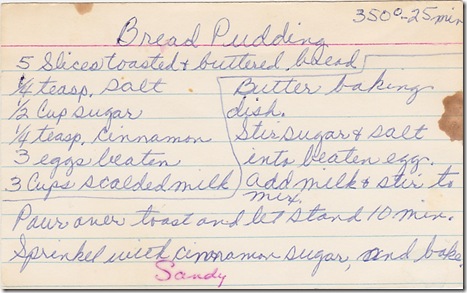 350° - 25 min
Bread Pudding
5 Slices toasted & buttered bread
¼ teasp. Salt
½ Cup sugar
¼ teasp. Cinnamon
3 eggs beaten
3 Cups scalded milk
Butter baking
dish.
Stir sugar & salt
into beaten egg.
add milk & stir to
mix.
Pour over toast and let stand 10 min.
Sprinkel with cinnamon sugar, and bake.
Sandy